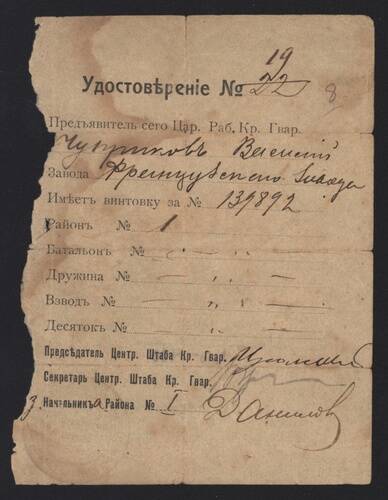 19
Удостовѣреніе № 22
8
Предъявитель сего Цар. Раб. Кр. Гвар.
Чуприковъ Василій
Завода Французскаго Завода
Имѣетъ винтовку за № 139892
Районъ № 1
Батальонъ № — „ —
Дружина № — „ —
Взводъ № — „ —
Десятокъ № — „ —
Предсѣдатель Центр. Штаба Кр. Гвар.
Секретарь Центр. Штаба Кр. Гвар.
З. Начальника Района № I Данилов